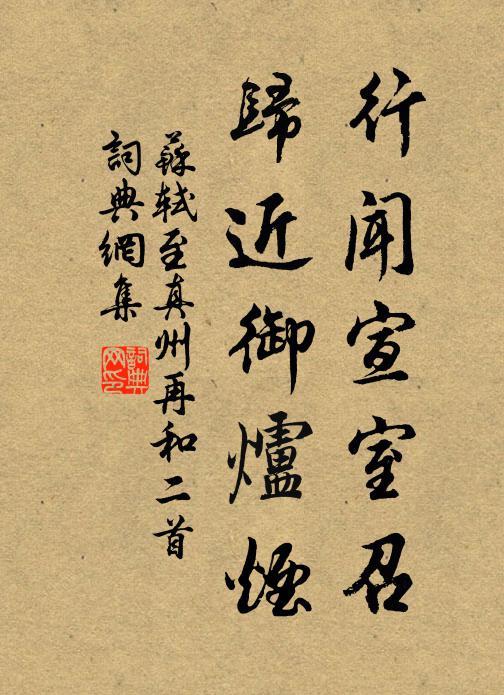 行闻宣室召
歸近御爐煙
蘇軾至真州再和二首
詞典網集
詞典网印